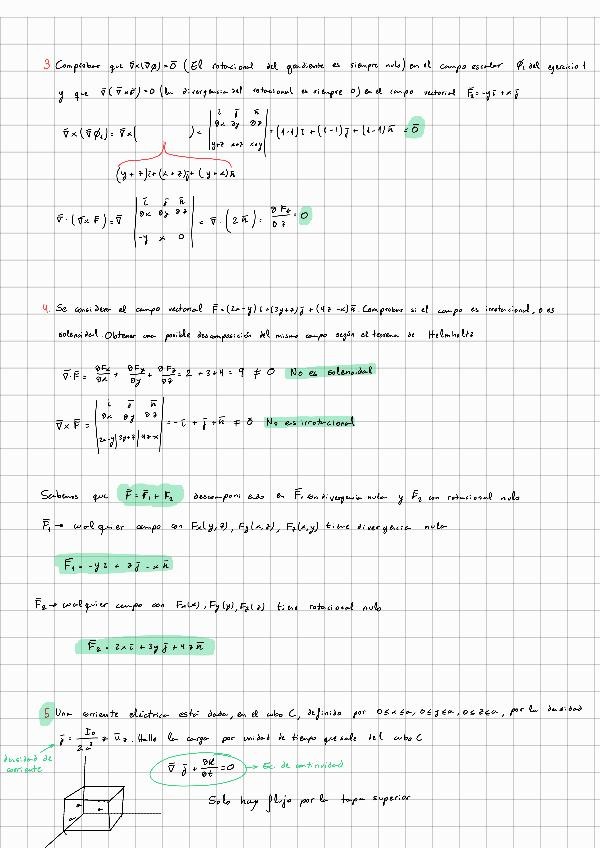 3 Comprobar que ∇̄x(∇̄ϕ)=0̄ (El rotacional del gradiente es siempre nulo) en el campo escalar ϕ₁ del ejercicio 1
y que ∇̄(∇̄xF̄)=0 (la divergencia del rotacional es siempre 0) en el campo vectorial F̄₂=-yī+xj̄
∇̄x(∇̄ϕ₁)=∇̄x( )=
ī j̄ k̄
∂x ∂y ∂z
y+z x+z x+y
=(1-1)ī+(1-1)j̄+(1-1)k̄ = 0̄
(y+z)ī+(x+z)j̄+(y+x)k̄
∇̄·(∇̄xF̄)=∇̄
ī j̄ k̄
∂x ∂y ∂z
-y x 0
= ∇̄·(2k̄)= ∂Fz/∂z = 0
4. Se considera el campo vectorial F̄=(2x-y)ī+(3y+z)j̄+(4z-x)k̄. Comprobar si el campo es irrotacional, o es
solenoidal. Obtener una posible descomposición del mismo campo según el teorema de Helmholtz
∇̄·F̄= ∂Fx/∂x + ∂Fz/∂y + ∂Fz/∂z = 2+3+4 = 9 ≠ 0 No es solenoidal
∇̄xF̄=
ī j̄ k̄
∂x ∂y ∂z
2x-y 3y+z 4z-x
= -ī+j̄+k̄ ≠ 0̄ No es irrotacional
Sabemos que F̄=F̄₁+F̄₂ descomponiendo en F̄₁ con divergencia nula y F̄₂ con rotacional nulo
F̄₁→ cualquier campo con Fx(y,z), Fy(x,z), Fz(x,y) tiene divergencia nula
F̄₁=-yī+zj̄-xk̄
F̄₂→ cualquier campo con Fx(x), Fy(y), Fz(z) tiene rotacional nulo
F̄₂=2xī+3yj̄+4zk̄
5 Una corriente eléctrica está dada, en el cubo C, definido por 0≤x≤a, 0≤y≤a, 0≤z≤a, por la densidad
j̄= I₀/2a³ z ūz. Halla la carga por unidad de tiempo que sale del cubo C
densidad de
corriente
∇̄ j̄ + ∂ρ/∂t = 0 → Ec. de continuidad
Solo hay flujo por la tapa superior